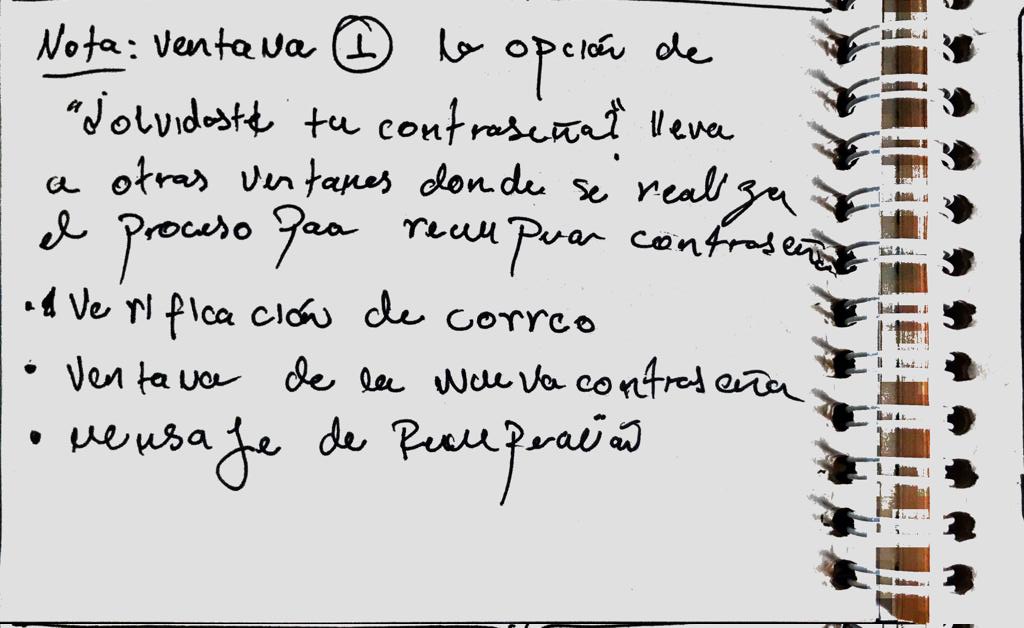 Nota: Ventana ① La opción de
"¿olvidaste tu contraseña?" lleva
a otras ventanas donde se realiza
el proceso para recuperar contraseña
• Verificación de correo
• Ventana de la nueva contraseña
• mensaje de Recuperación